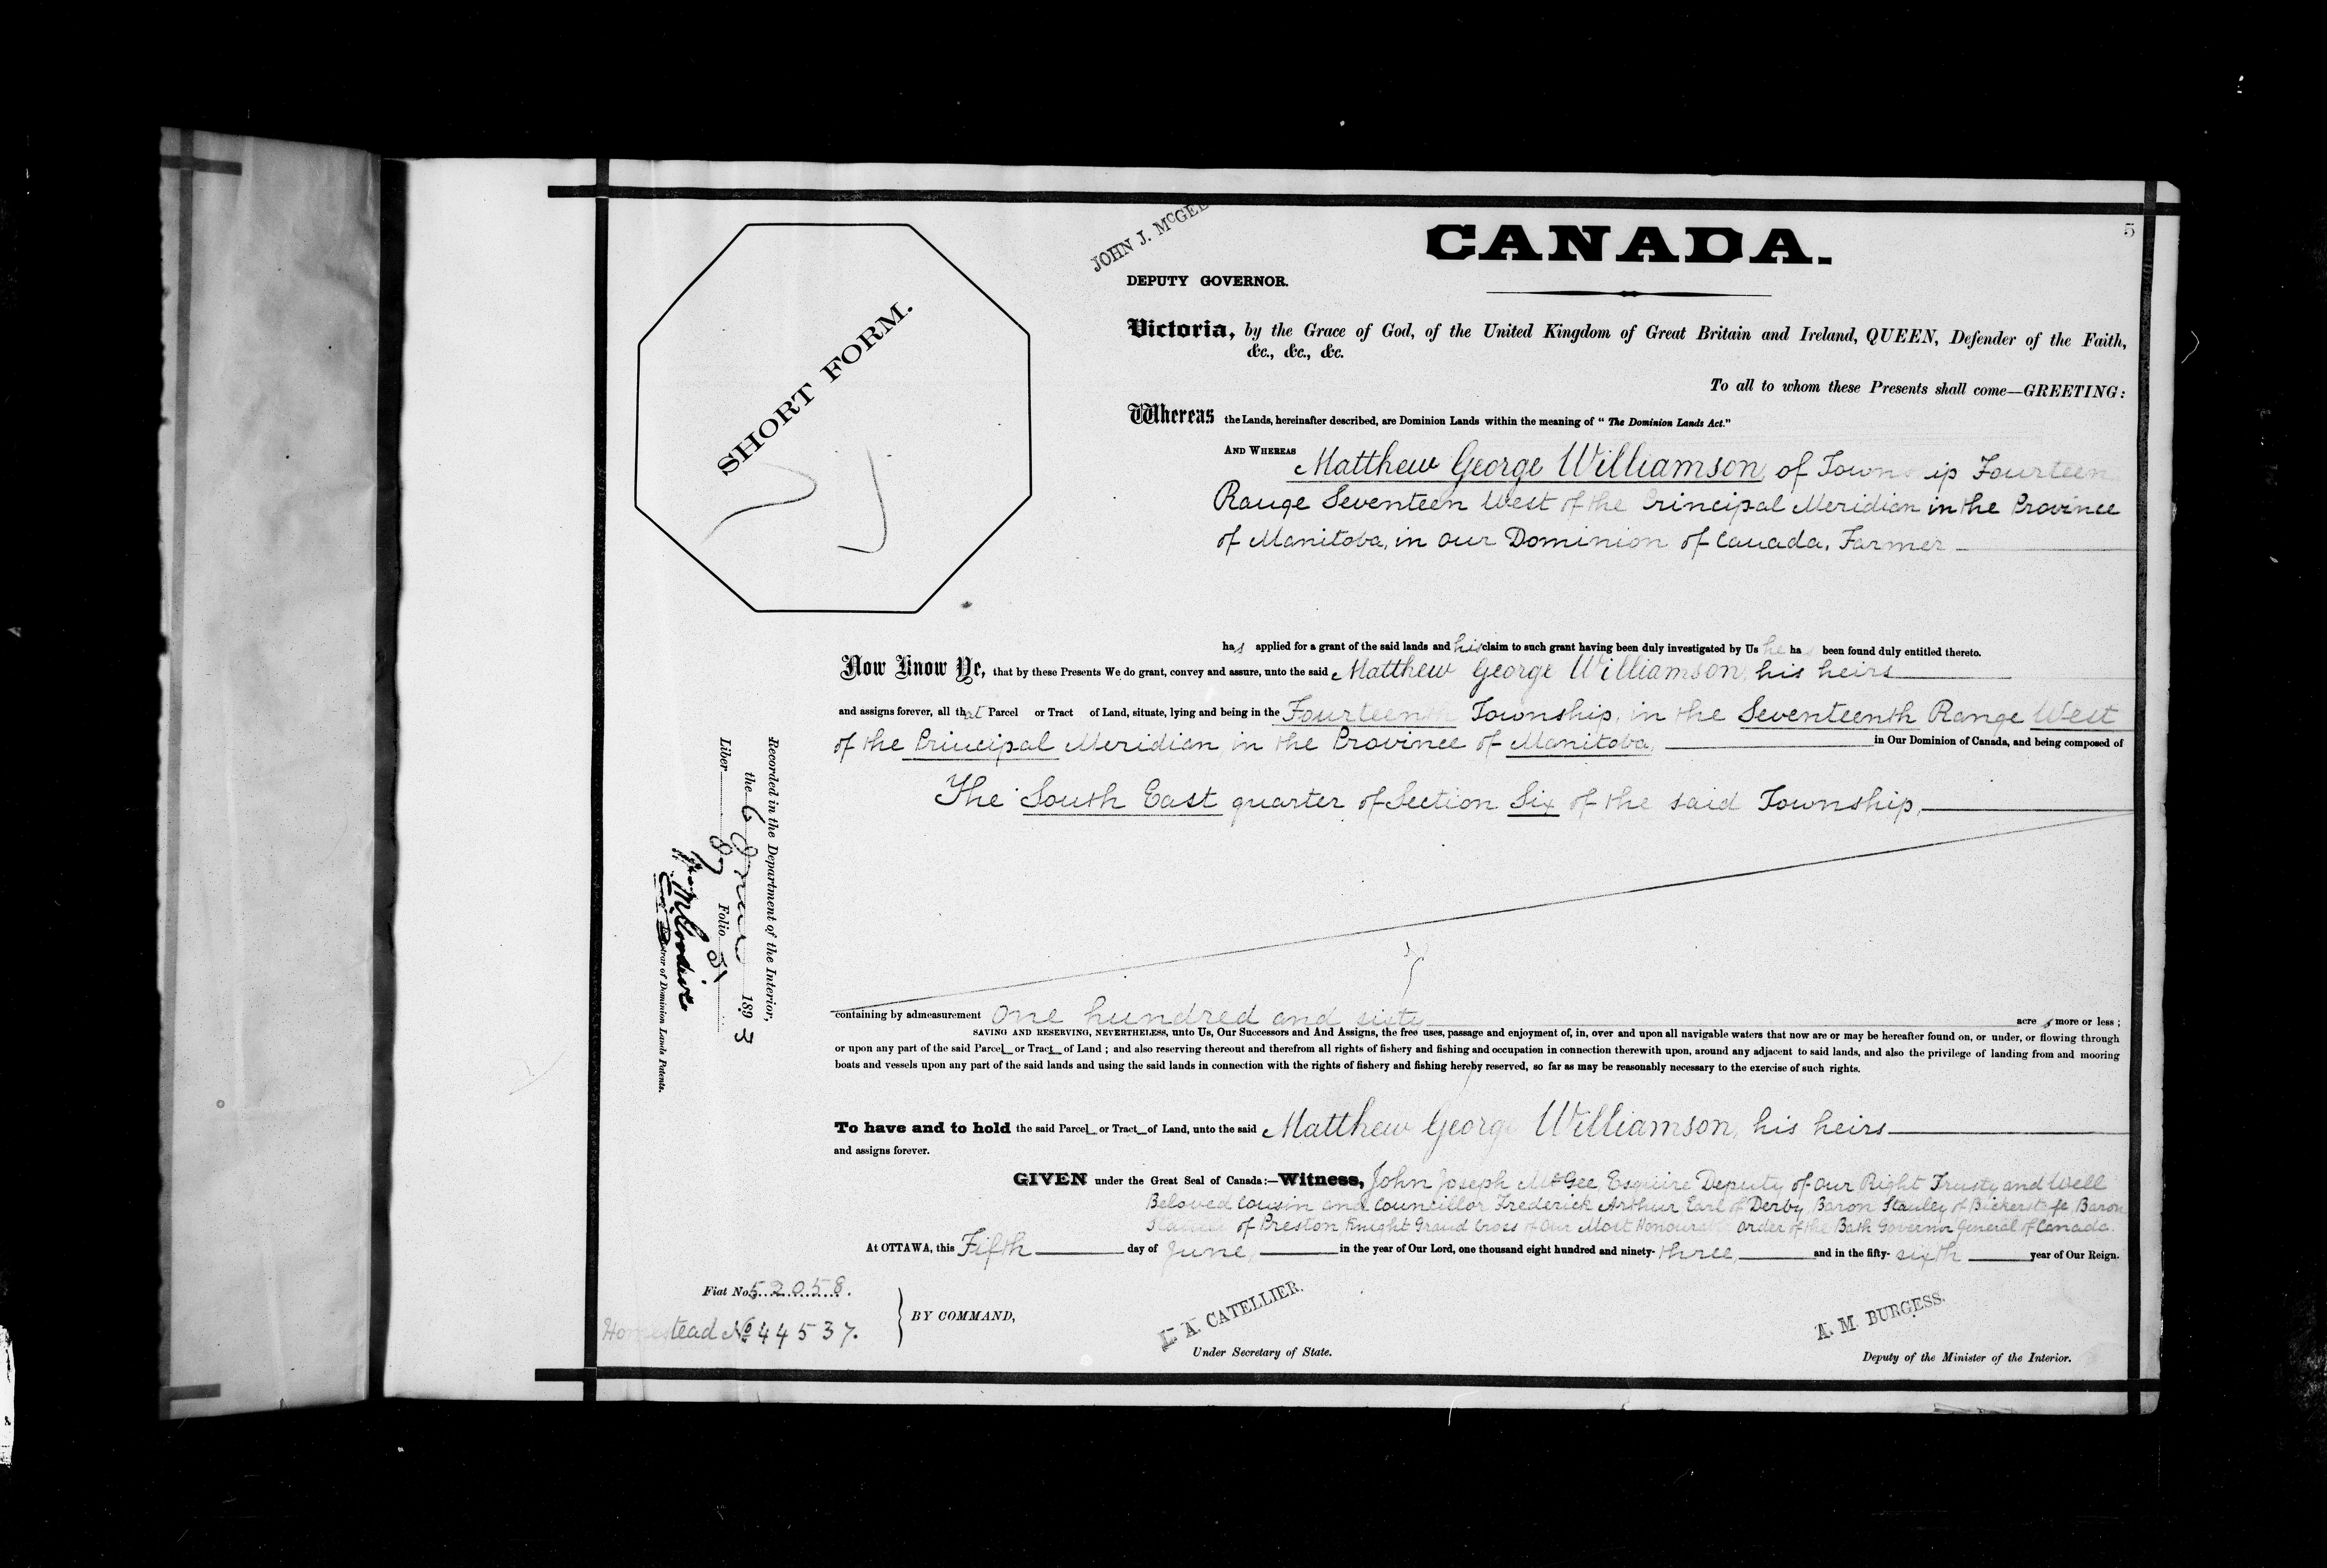 5
JOHN J. McGEE
CANADA.
DEPUTY GOVERNOR.
SHORT FORM.
Victoria, by the Grace of God, of the United Kingdom of Great Britain and Ireland, QUEEN, Defender of the Faith,
&c., &c., &c.
To all to whom these Presents shall come—GREETING:
Whereas the Lands, hereinafter described, are Dominion Lands within the meaning of "The Dominion Lands Act."
AND WHEREAS Matthew George Williamson, of Township Fourteen
Range Seventeen West of the Principal Meridian in the Province
of Manitoba, in Our Dominion of Canada, Farmer
has applied for a grant of the said lands and his claim to such grant having been duly investigated by Us he ha been found duly entitled thereto.
Now Know Ye, that by these Presents We do grant, convey and assure, unto the said Matthew George Williamson, his heirs
and assigns forever, all that Parcel or Tract of Land, situate, lying and being in the Fourteenth Township, in the Seventeenth Range West
of the Principal Meridian, in the Province of Manitoba, in Our Dominion of Canada, and being composed of
The South East quarter of Section Six of the said Township,
containing by admeasurement one hundred and sixty acres more or less;
SAVING AND RESERVING, NEVERTHELESS, unto Us, Our Successors and And Assigns, the free uses, passage and enjoyment of, in, over and upon all navigable waters that now are or may be hereafter found on, or under, or flowing through
or upon any part of the said Parcel or Tract of Land; and also reserving thereout and therefrom all rights of fishery and fishing and occupation in connection therewith upon, around any adjacent to said lands, and also the privilege of landing from and mooring
boats and vessels upon any part of the said lands and using the said lands in connection with the rights of fishery and fishing hereby reserved, so far as may be reasonably necessary to the exercise of such rights.
To have and to hold the said Parcel or Tract of Land, unto the said Matthew George Williamson, his heirs
and assigns forever.
GIVEN under the Great Seal of Canada:—Witness, John Joseph McGee, Esquire Deputy of Our Right Trusty and Well
Beloved Cousin and Councillor Frederick Arthur Earl of Derby, Baron Stanley of Bickerstaffe, Baron
Stanley of Preston Knight Grand Cross of Our Most Honourable order of the Bath Governor General of Canada.
At OTTAWA, this Fifth day of June, in the year of Our Lord, one thousand eight hundred and ninety-three, and in the fifty-sixth year of Our Reign.
Fiat No. 52058.
Homestead No 44537.
BY COMMAND,
L. A. CATELLIER.
Under Secretary of State.
A. M. BURGESS.
Deputy of the Minister of the Interior.
Recorded in the Department of the Interior,
the 6 June 1893
Liber 87 Folio 5
of Dominion Lands Patents.